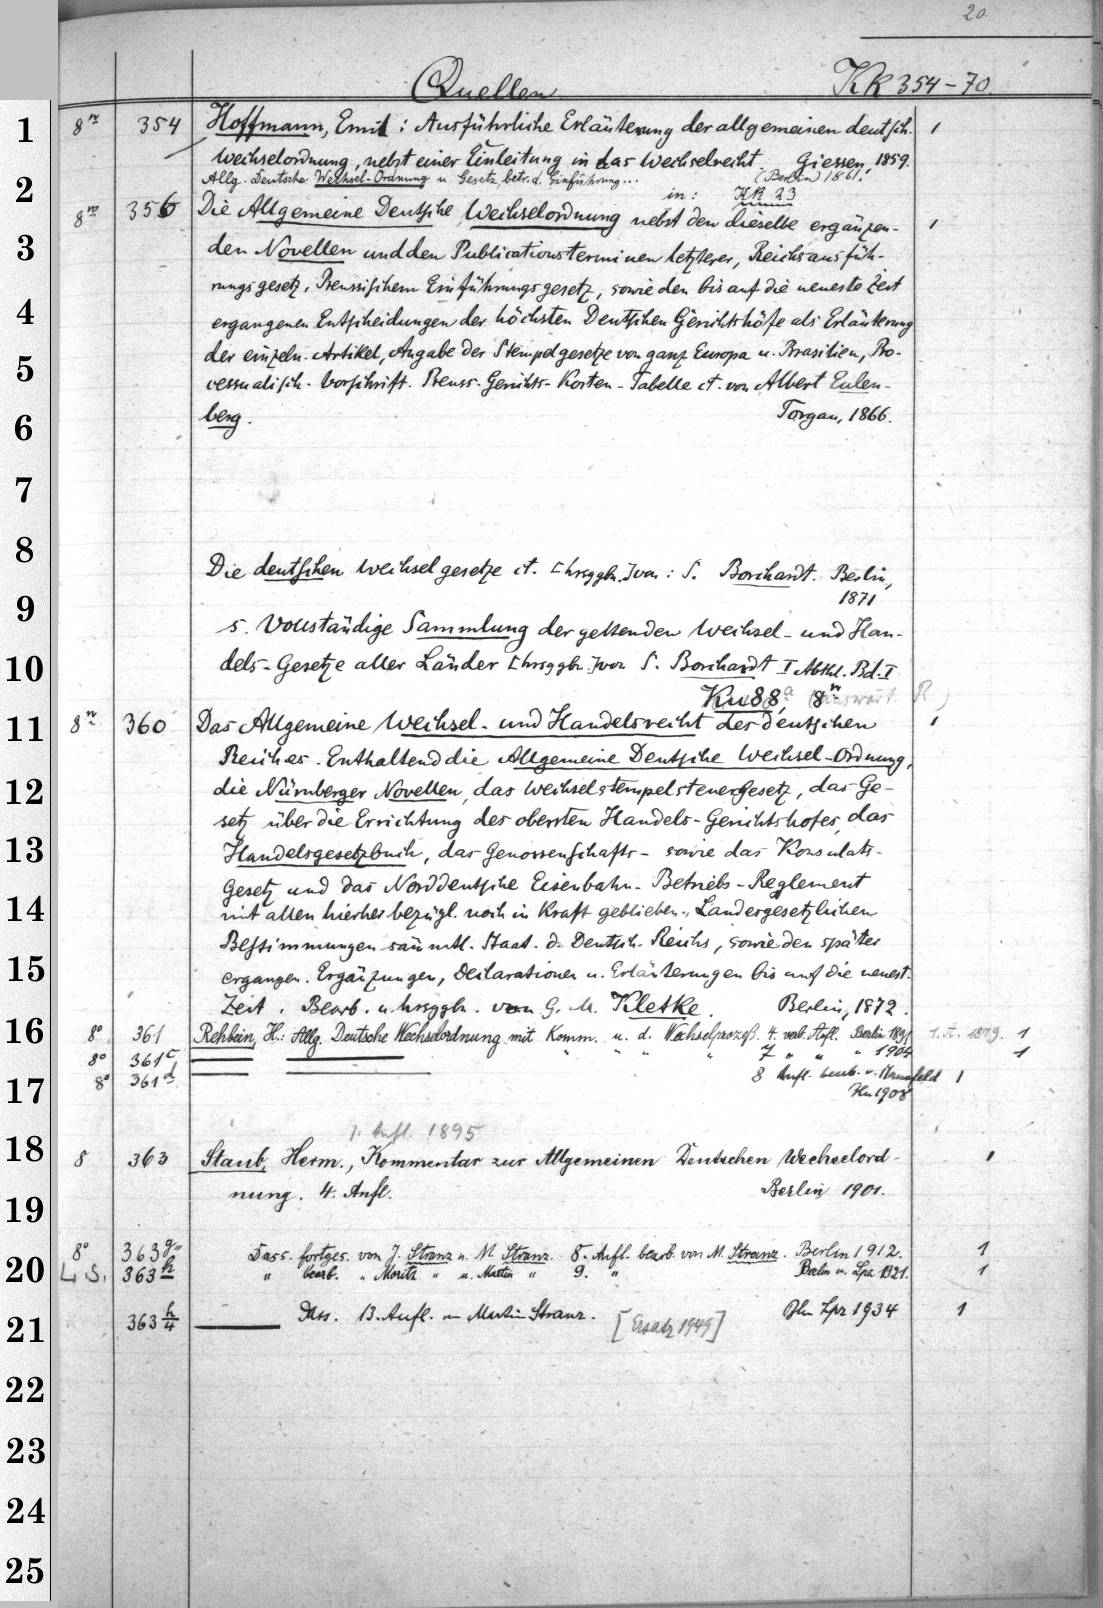 20
Quellen Kk 354-70
1
2
3
4
5
6
7
8
9
10
11
12
13
14
15
16
17
18
19
20
21
22
23
24
25
8° 354 Hoffmann, Emil: Ausführliche Erläuterung der allgemeinen deutsch. 1
Wechselordnung, nebst einer Einleitung in das Wechselrecht. Giessen, 1859.
Allg. Deutsche Wechsel-Ordnung u. Gesetz, betr. d. Einführung... (Berlin) 1861.
in: KR 23
8° 356 Die Allgemeine Deutsche Wechselordnung nebst den dieselbe ergänzen- 1
den Novellen und den Publicationsterminen letzterer, Reichsausfüh-
rungsgesetz, Preussischem Einführungsgesetz, sowie den bis auf die neueste Zeit
ergangenen Entscheidungen der höchsten Deutschen Gerichtshöfe als Erläuterung
der einzeln. Artikel, Angabe der Stempelgesetze von ganz Europa u. Brasilien, Pro-
cessualisch. Vorschrift. Preuss. Gerichts-Kosten-Tabelle et. von Albert Eulen-
berg. Torgau, 1866.
Die deutschen Wechselgesetze et. [hrsggbn.] von: S. Borchardt. Berlin,
1871
s. Vollständige Sammlung der geltenden Wechsel- und Han-
dels-Gesetze aller Länder [hrsggbn.] von S. Borchardt I Abthl. Bd. I
Ku 88, 8°
8° 360 Das Allgemeine Wechsel- und Handelsrecht des deutschen 1
Reiches. Enthaltend die Allgemeine Deutsche Wechsel-Ordnung,
die Nürnberger Novellen, das Wechselstempelsteuergesetz, das Ge-
setz über die Errichtung des obersten Handels-Gerichtshofes, das
Handelsgesetzbuch, das Genossenschafts- sowie das Konsulats-
Gesetz und das Norddeutsche Eisenbahn-Betriebs-Reglement
mit allen hierher bezügl. noch in Kraft geblieben. Landesgesetzlichen
Bestimmungen sämmtl. Staat. d. Deutsch. Reichs, sowie den später
ergangen. Ergänzungen, Declarationen u. Erläuterungen bis auf die neuest.
Zeit. Bearb. u. hrsggbn. von G. M. Kletke. Berlin, 1872.
8° 361 Rehbein, H.: Allg. Deutsche Wechselordnung mit Komm. u. d. Wechselprozeß. 4. verb. Aufl. Berlin 1891 1. A. 1879. 1
8° 361c " " " " 7 " " " 1904 1
8° 361d 8 Aufl. bearb. v. Mansfeld 1
Bln 1908
1. Aufl. 1895
8 363 Staub, Herm., Kommentar zur Allgemeinen Deutschen Wechselord- 1
nung. 4. Aufl. Berlin 1901.
8° 363g Dass. fortges. von J. Stranz u. M. Stranz. 8. Aufl. bearb. von M. Stranz. Berlin 1912. 1
L. S. 363h " bearb. " Moritz " u. Martin " 9. " Berlin u. Lpz. 1921. 1
363 h/4 Dass. 13. Aufl. v. Martin Stranz. Bln Lpz 1934 1
[Ersatz 1949]